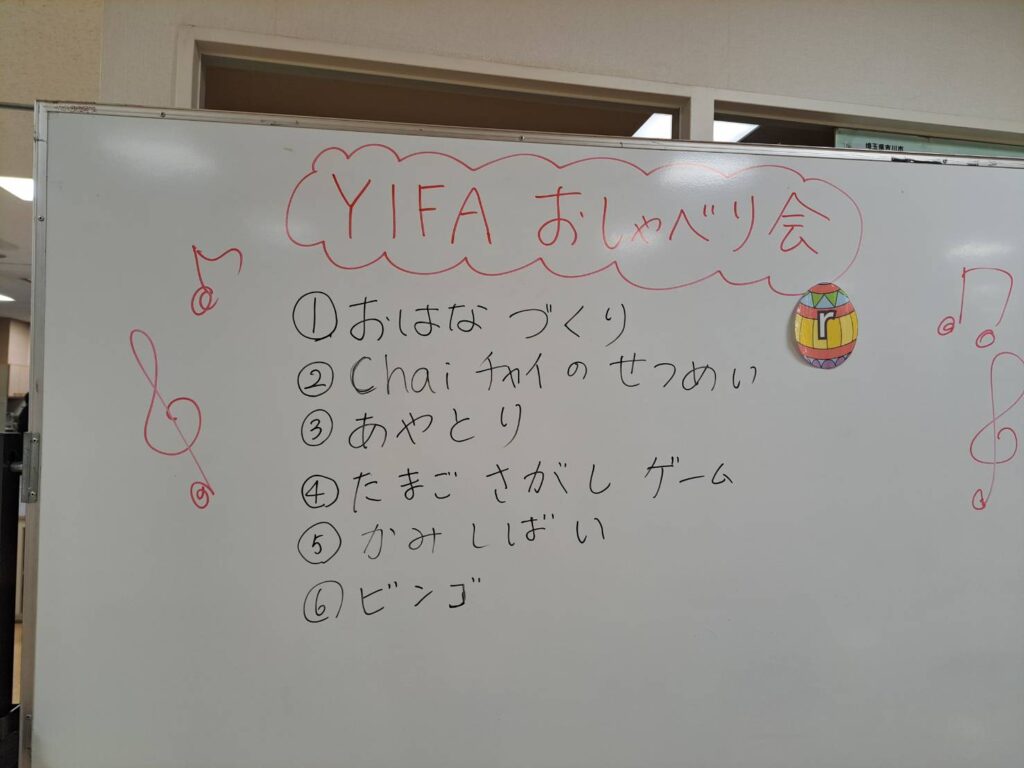 埼玉県吉川市
YIFA おしゃべり会
①おはな づくり
r
②Chai チャイの せつめい
③あやとり
④たまご さがし ゲーム
⑤かみしばい
⑥ビンゴ